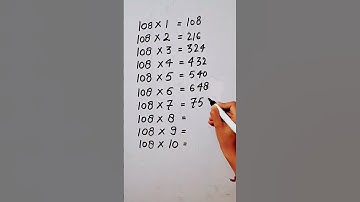 108 × 1 = 108
108 × 2 = 216
108 × 3 = 324
108 × 4 = 432
108 × 5 = 540
108 × 6 = 648
108 × 7 = 75
108 × 8 =
108 × 9 =
108 × 10 =